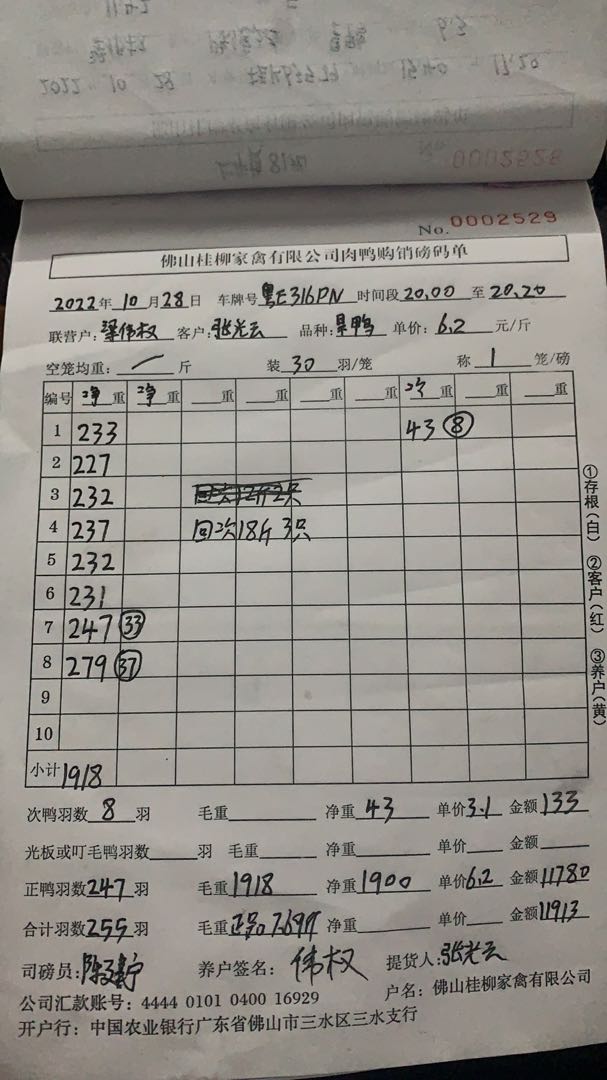 0002528
No. 0002529
佛山桂柳家禽有限公司肉鸭购销磅码单
2022年10月28日 车牌号粤E316PN 时间段20.00至20.20
联营户:梁伟权 客户:张光云 品种: 单价:6.2元/斤
空笼均重: 一 斤 装30羽/笼 称1笼/磅
编号 净重 净重 重 重 重 重 次重 重 重
1 233 43 ⑧
2 227
3 232 回次12斤2只
4 237 回次18斤3只
5 232
6 231
7 247 ㉝
8 279 ㊲
9
10
小计 1918
①存根(白) ②客户(红) ③养户(黄)
次鸭羽数8羽 毛重 净重43 单价3.1 金额133
光板或叮毛鸭羽数 羽 毛重 净重 单价 金额
正鸭羽数247羽 毛重1918 净重1900 单价6.2 金额11780
合计羽数255羽 毛重正品7.69斤 净重 单价 金额11913
司磅员: 养户签名:伟权 提货人:张光云
公司汇款账号:4444 0101 0400 16929 户名:佛山桂柳家禽有限公司
开户行:中国农业银行广东省佛山市三水区三水支行